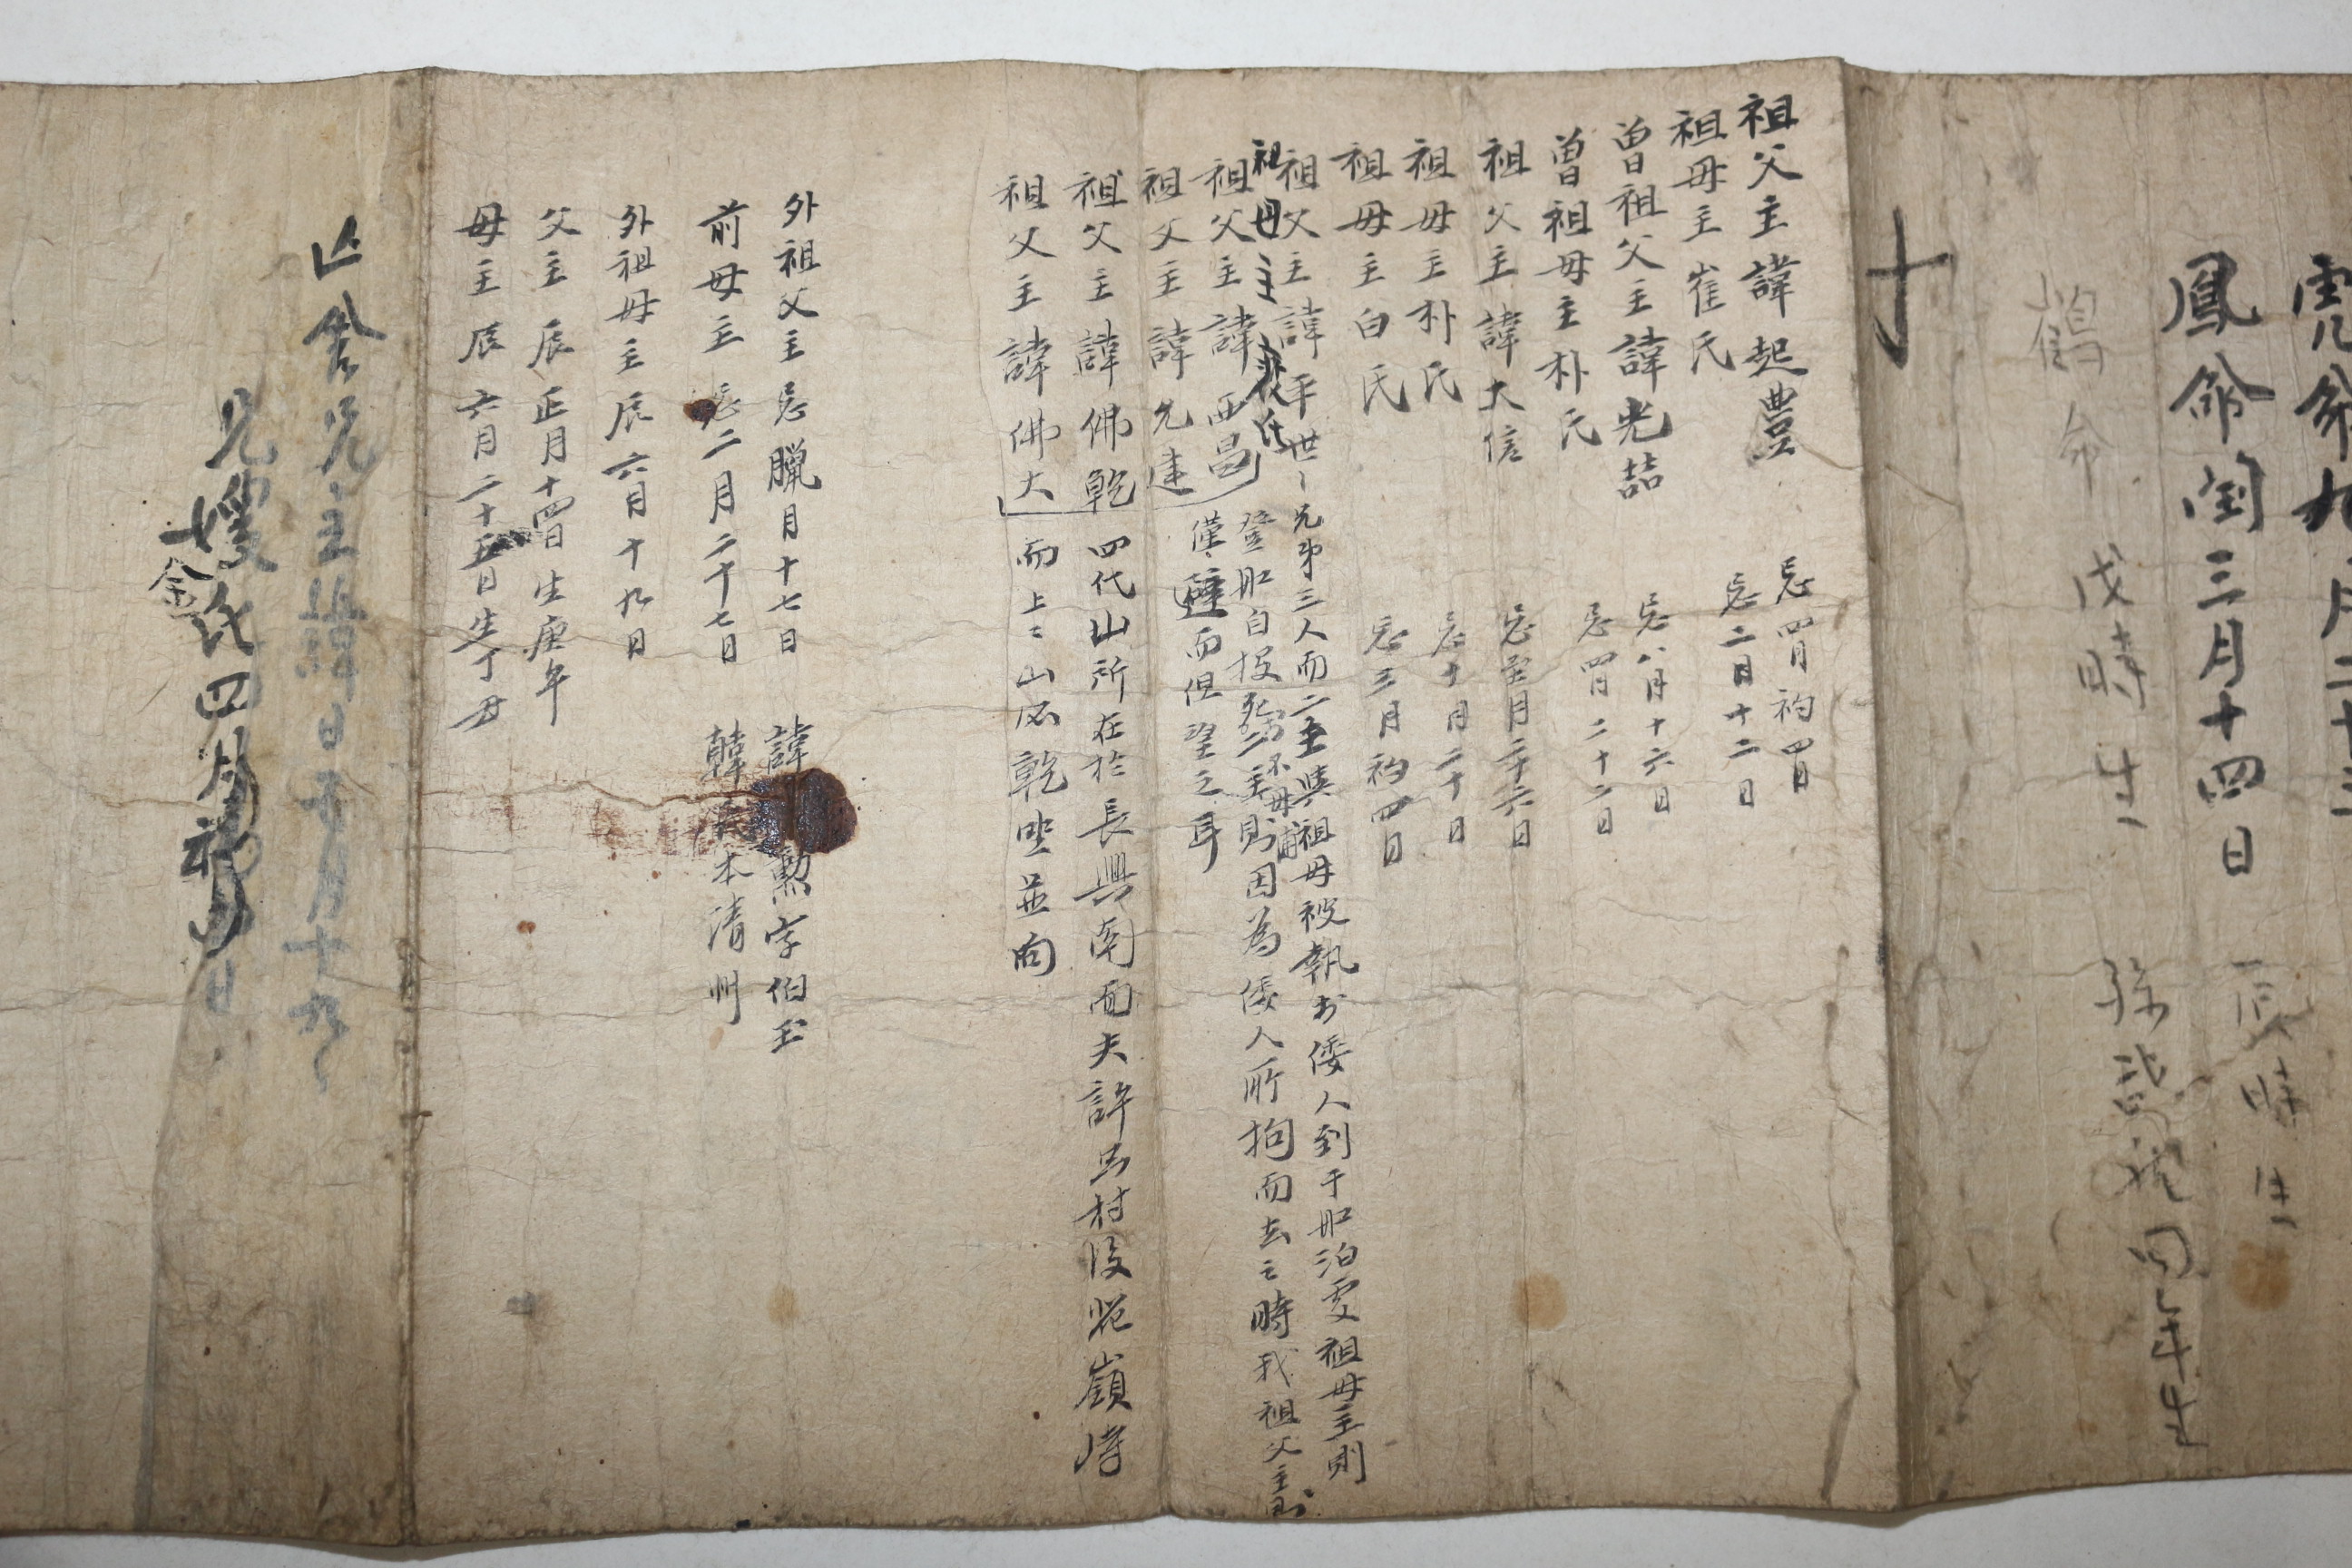 鳳命閏三月十四日 辰時生
鶴命 戊時生
祖父主諱起豊 忌四月初四日
祖母主崔氏 忌二月十二日
曽祖父主諱光喆 忌八月十六日
曽祖母主朴氏 忌四月二十二日
祖父主諱大信 忌至月二十六日
祖母主朴氏 忌十月二十日
祖母主白氏 忌三月初四日
祖父主諱平世 兄弟三人而二主與祖母被執於倭人到于舡泊處祖母主則
登舡自投 二主則因為倭人所拘而去之時我祖父主則
僅避而但望之耳
祖母主裵氏
祖父主諱西邑
祖父主諱允建
祖父主諱佛乾 四代山所在於長興南面夫許馬村後 嶺
祖父主諱佛大 而上之山必乾坐並向
外祖父主忌臘月十七日 諱 勲字伯玉
前母主忌二月二十七日 韓 本清州
外祖母主辰六月十九日
父主辰正月十四日生庚午
母主辰六月二十五日生丁丑
兄主諱日 月十九
兄嫂金氏四月 日